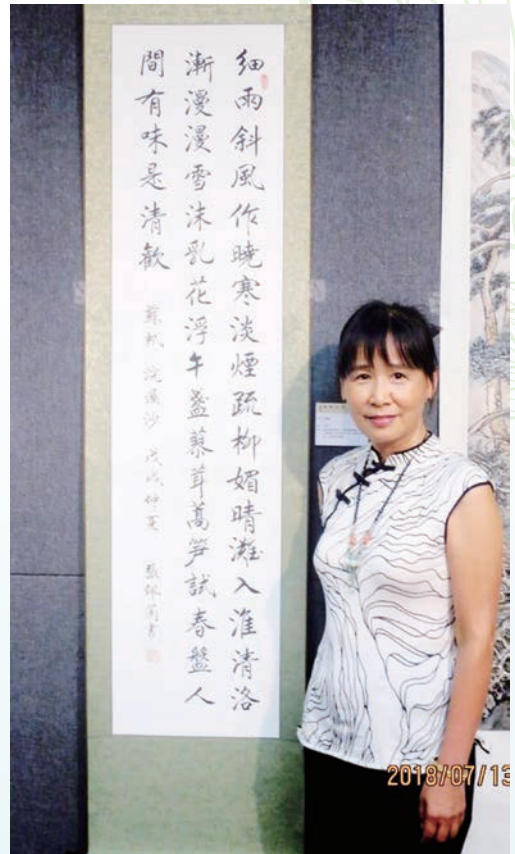 細雨斜風作曉寒淡煙疏柳媚晴灘入淮清洛
漸漫漫雪沫乳花浮午盞蓼茸蒿笋試春盤人
間有味是清歡 蘇軾 浣溪沙 戊戌仲夏 書
2018/07/13